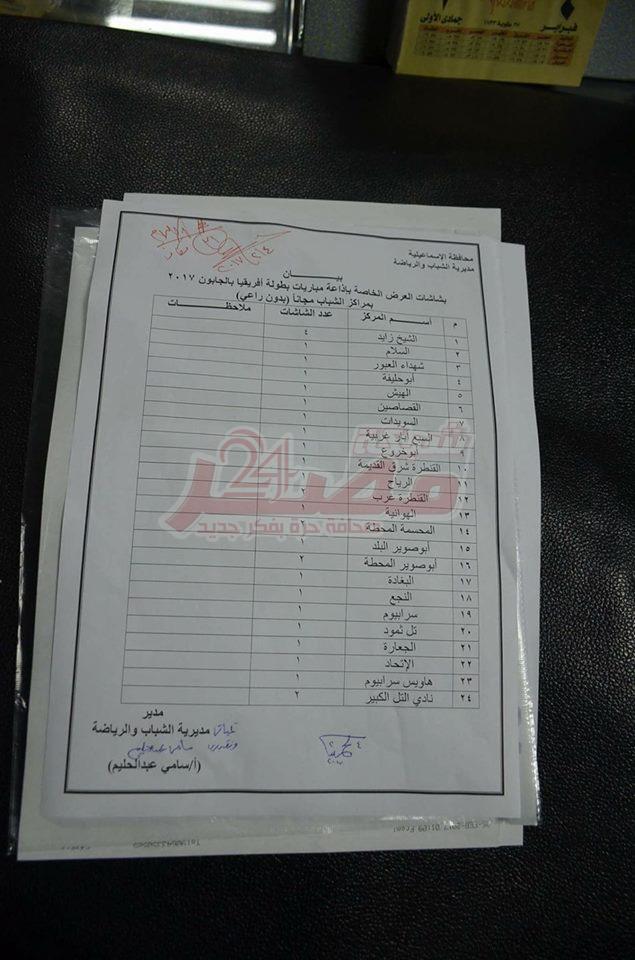 فبراير
جمادى الأولى
محافظة الإسماعيلية
مديرية الشباب والرياضة
بيـــــان
بشاشات العرض الخاصة بإذاعة مباريات بطولة أفريقيا بالجابون ٢٠١٧
بمراكز الشباب مجاناً (بدون راعي)
م أســـم المركز عدد الشاشات ملاحظـــات
١ الشيخ زايد ٤
٢ السلام ١
٣ شهداء العبور ١
٤ أبوخليفة ١
٥ الهيش ١
٦ القصاصين ١
٧ السويدات ١
٨ السبع آبار غربية ١
٩ أبوخروع ١
١٠ القنطرة شرق القديمة ١
١١ الرياح
١٢ القنطرة غرب ٢
١٣ الهوانية ١
١٤ المحسمة المحطة ٢
١٥ أبوصوير البلد ١
١٦ أبوصوير المحطة ٢
١٧ البغادة ١
١٨ النجع ١
١٩ سرابيوم ١
٢٠ تل ثمود ١
٢١ الجعارة ١
٢٢ الإتحاد ١
٢٣ هاويس سرابيوم ١
٢٤ نادي التل الكبير ٢
مصر 24
صحافة حرة بفكر جديد
مدير
مديرية الشباب والرياضة
(أ/سامي عبدالحليم)